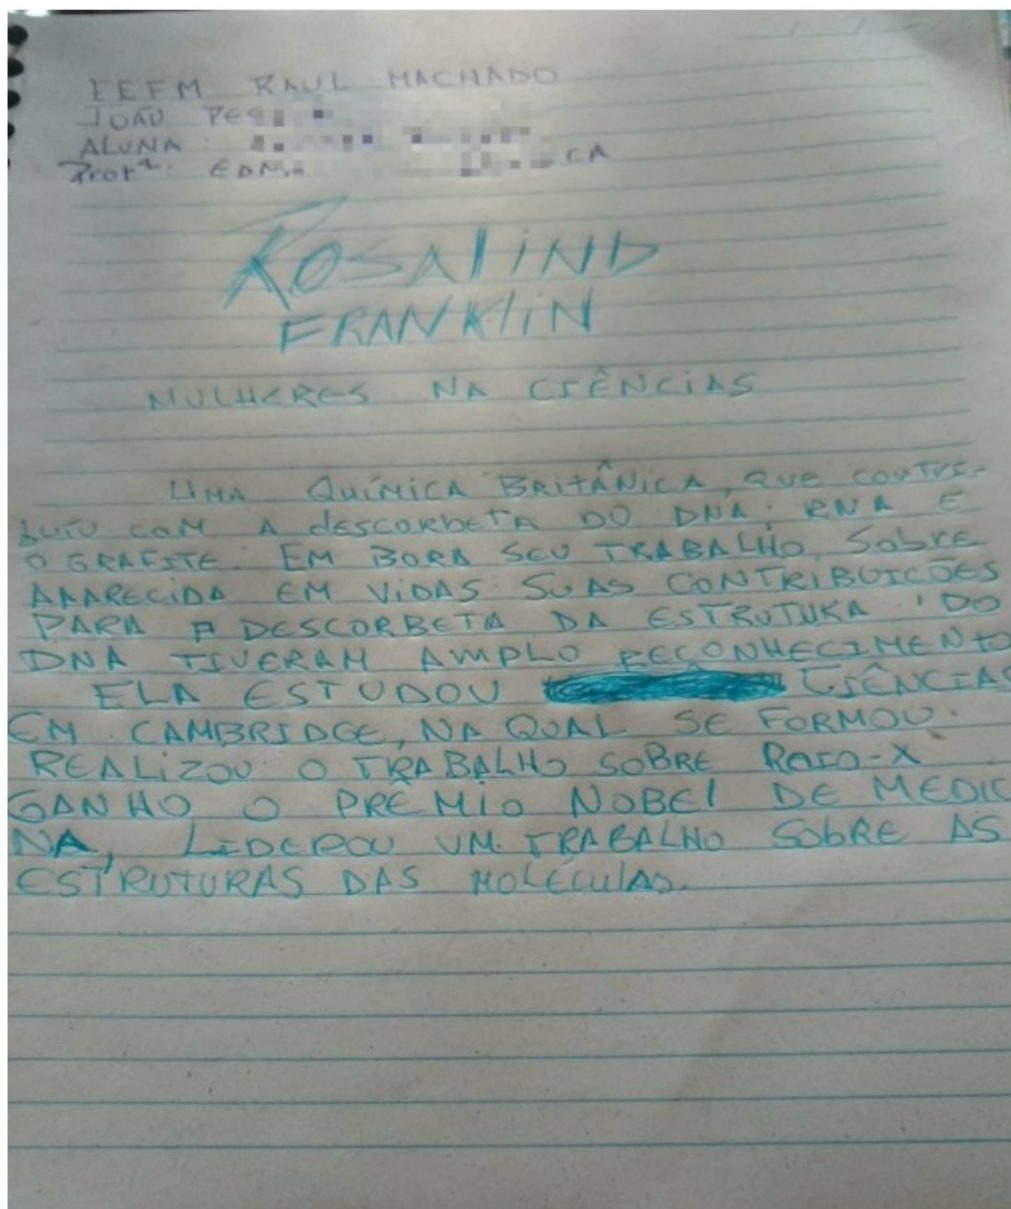 EEFM RAUL MACHADO
JOÃO
ALUNA
Profª: EDN
ROSALIND
FRANKLIN
MULHERES NA CIÊNCIAS
UMA QUÍMICA BRITÂNICA, QUE CONTRI-
BUIU COM A DESCORBETA DO DNA, RNA E
O GRAFITE. EM BORA SEU TRABALHO SOBRE
APARECIDA EM VIDAS SUAS CONTRIBUICÕES
PARA A DESCORBETA DA ESTRUTURA DO
DNA TIVERAM AMPLO RECONHECIMENTO
ELA ESTUDOU CIÊNCIAS
EM CAMBRIDGE, NA QUAL SE FORMOU.
REALIZOU O TRABALHO SOBRE RAIO-X
GANHO O PRÊMIO NOBEL DE MEDIC
NA, LIDEROU UM TRABALHO SOBRE AS
ESTRUTURAS DAS MOLÉCULAS.